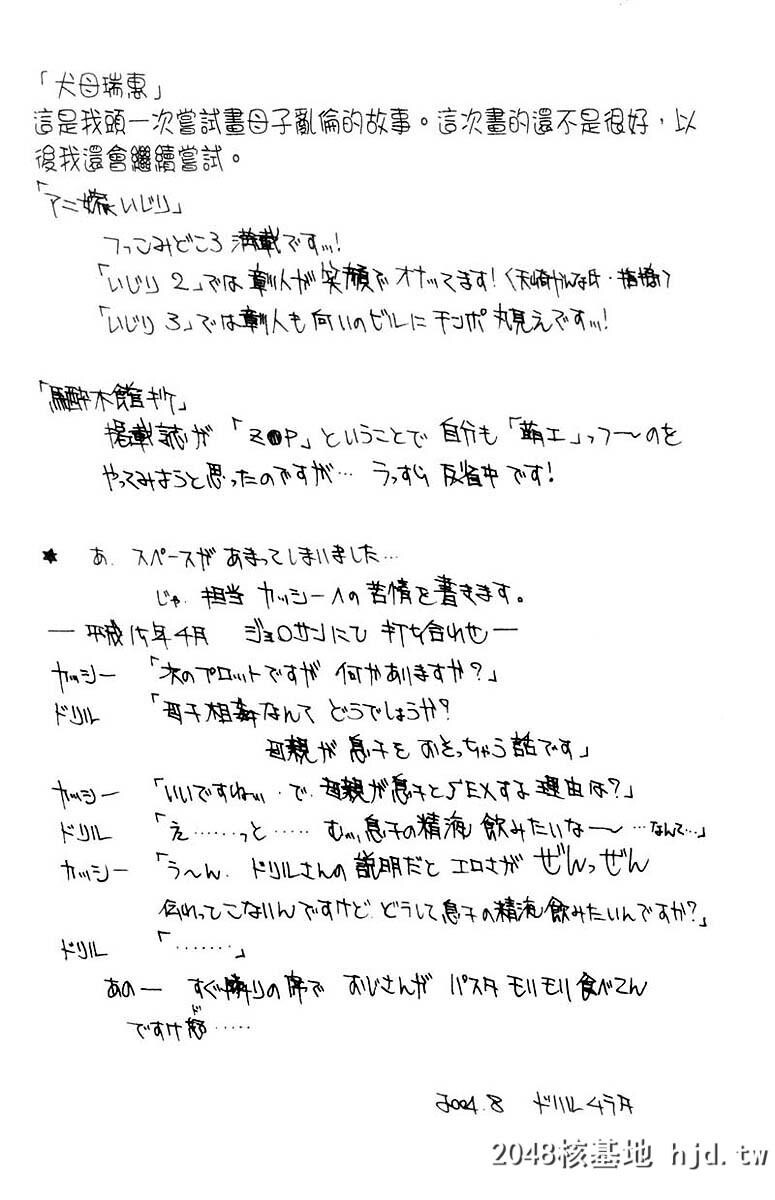 「犬母瑞惠」
這是我頭一次嘗試畫母子亂倫的故事。這次畫的還不是很好，以
後我還會繼續嘗試。
「アニ嫁いじり」
つっこみどころ満載ですッ!
「いじり 2」では彰人が笑顔でオナッてます!
「いじり 3」では彰人も向いのビルにチンポ丸見えですッ!
「馬酔木館
掲載誌が「Z●P」ということで自分も「萌エ」っつ〜のを
やってみようと思ったのですが… うっすら反省中です!
★ あ. スペースがあまってしまいました…
じゃ. 担当カッシーへの苦情を書きます。
― 平成15年4月 ジョ○サンにて 打ち合わせ ―
カッシー 「次のプロットですが 何かありますか?」
ドリル 「母子相姦なんて どうでしょうか?
母親が 息子を おそっちゃう話です」
カッシー 「いいですねッ. で. 母親が息子とSEXする理由は?」
ドリル 「え……っと…… むッ, 息子の精液 飲みたいな〜 …なんて…」
カッシー 「う〜ん. ドリルさんの説明だと エロさが ぜんっぜん
伝わってこないんですけど. どうして息子の精液飲みたいんですか?」
ドリル 「・・・・・・・」
あの― すぐ隣りの席で おじさんが パスタ モリモリ食べてん
ですけど……
2004.8 ドリルムラタ
2048核基地 hjd.tw